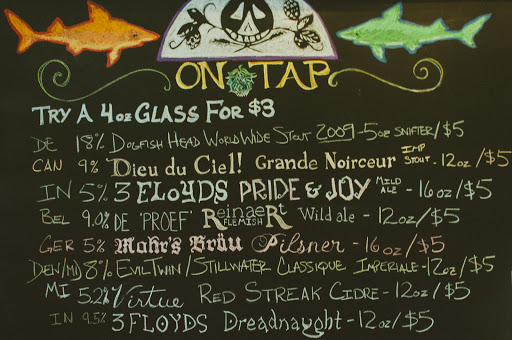 ON TAP
TRY A 4oz GLASS FOR $3
DE 18% DOGFISH HEAD WORLD WIDE STOUT 2009-5oz SNIFTER/$5
CAN 9% Dieu du Ciel! Grande Noirceur IMP STOUT - 12oz/$5
IN 5% 3 FLOYDS PRIDE & JOY MILD ALE - 16oz/$5
BEL 9.0% DE 'PROEF' Reinaert FLEMISH Wild ale - 12oz/$5
GER 5% Mahr's Bräu Pilsner - 16oz/$5
DEN/MD 8% EVIL TWIN/STILLWATER CLASSIQUE IMPERIALE-12oz/$5
MI 5.2% Virtue RED STREAK CIDRE-12oz/$5
IN 9.5% 3 FLOYDS Dreadnaught-12oz/$5